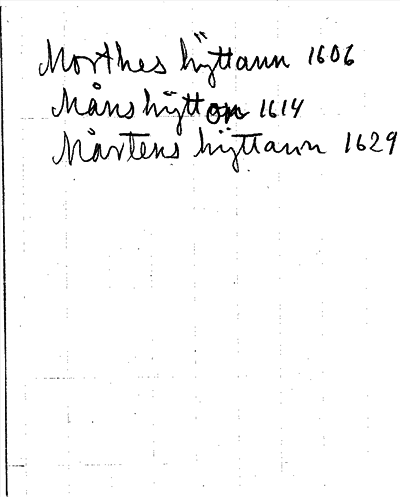 Morthes hÿttann 1606
Månshÿtton 1614
Mårtens hÿttann 1629